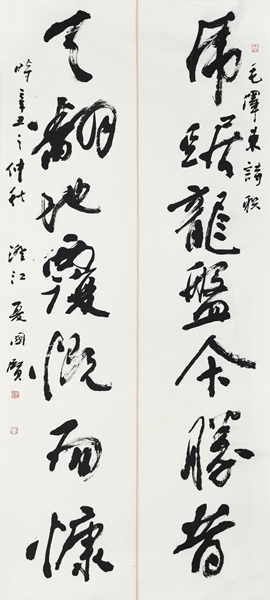 虎踞龍盤今勝昔
毛澤東詩聯
天翻地覆慨而慷
時辛丑之仲秋 澄江 夏國賢